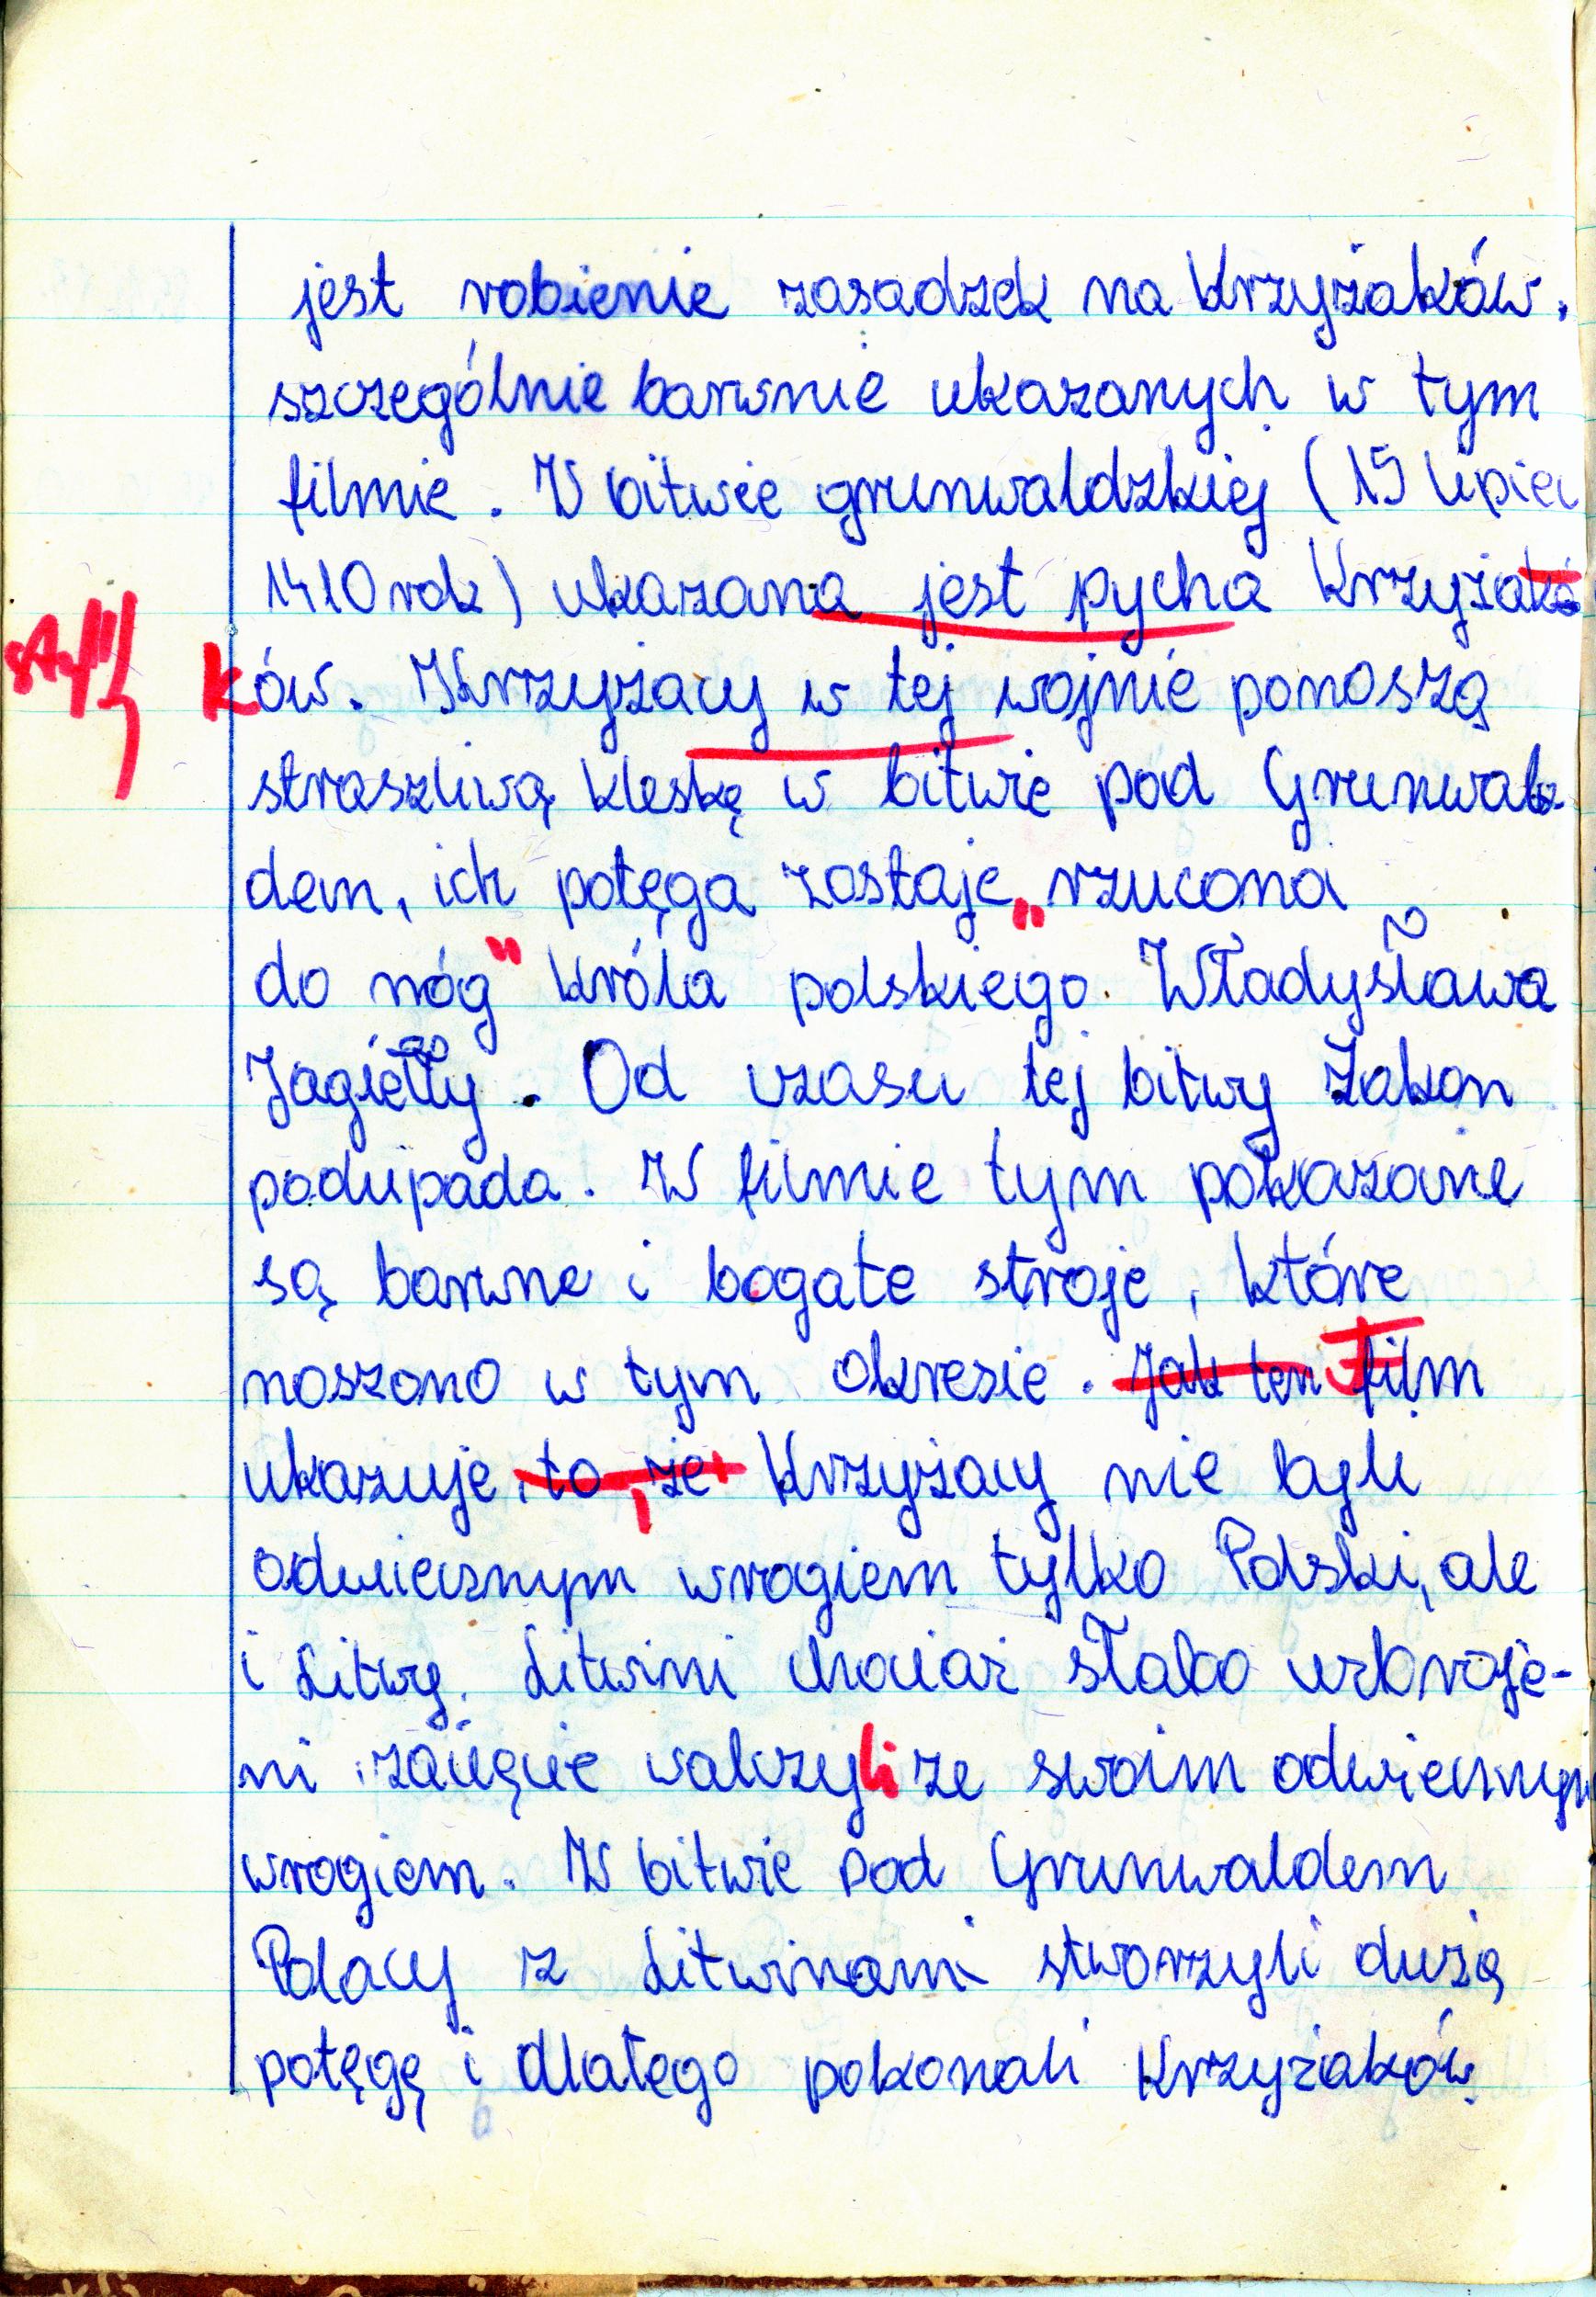 jest robienie zasadzek na Krzyżaków.
szczególnie barwnie ukazanych w tym
filmie. W bitwie grunwaldzkiej (15 lipiec
1410 rok) ukazana jest pycha Krzyżakó
ków. Krzyżacy w tej wojnie ponoszą
straszliwą klęskę w bitwie pod Grunwal-
dem, ich potęga zostaje „rzucona
do nóg" króla polskiego. Władysława
Jagiełły. Od czasu tej bitwy Zakon
podupada. W filmie tym pokazane
są barwne i bogate stroje, które
noszono w tym okresie. Jak ten Film
ukazuje, to, że Krzyżacy nie byli
odwiecznym wrogiem tylko Polski, ale
i Litwy. Litwini chociaż słabo uzbroje-
ni zacięcie walczyli ze swoim odwiecznym
wrogiem. W bitwie pod Grunwaldem
Polacy z Litwinami stworzyli dużą
potęgę i dlatego pokonali Krzyżaków